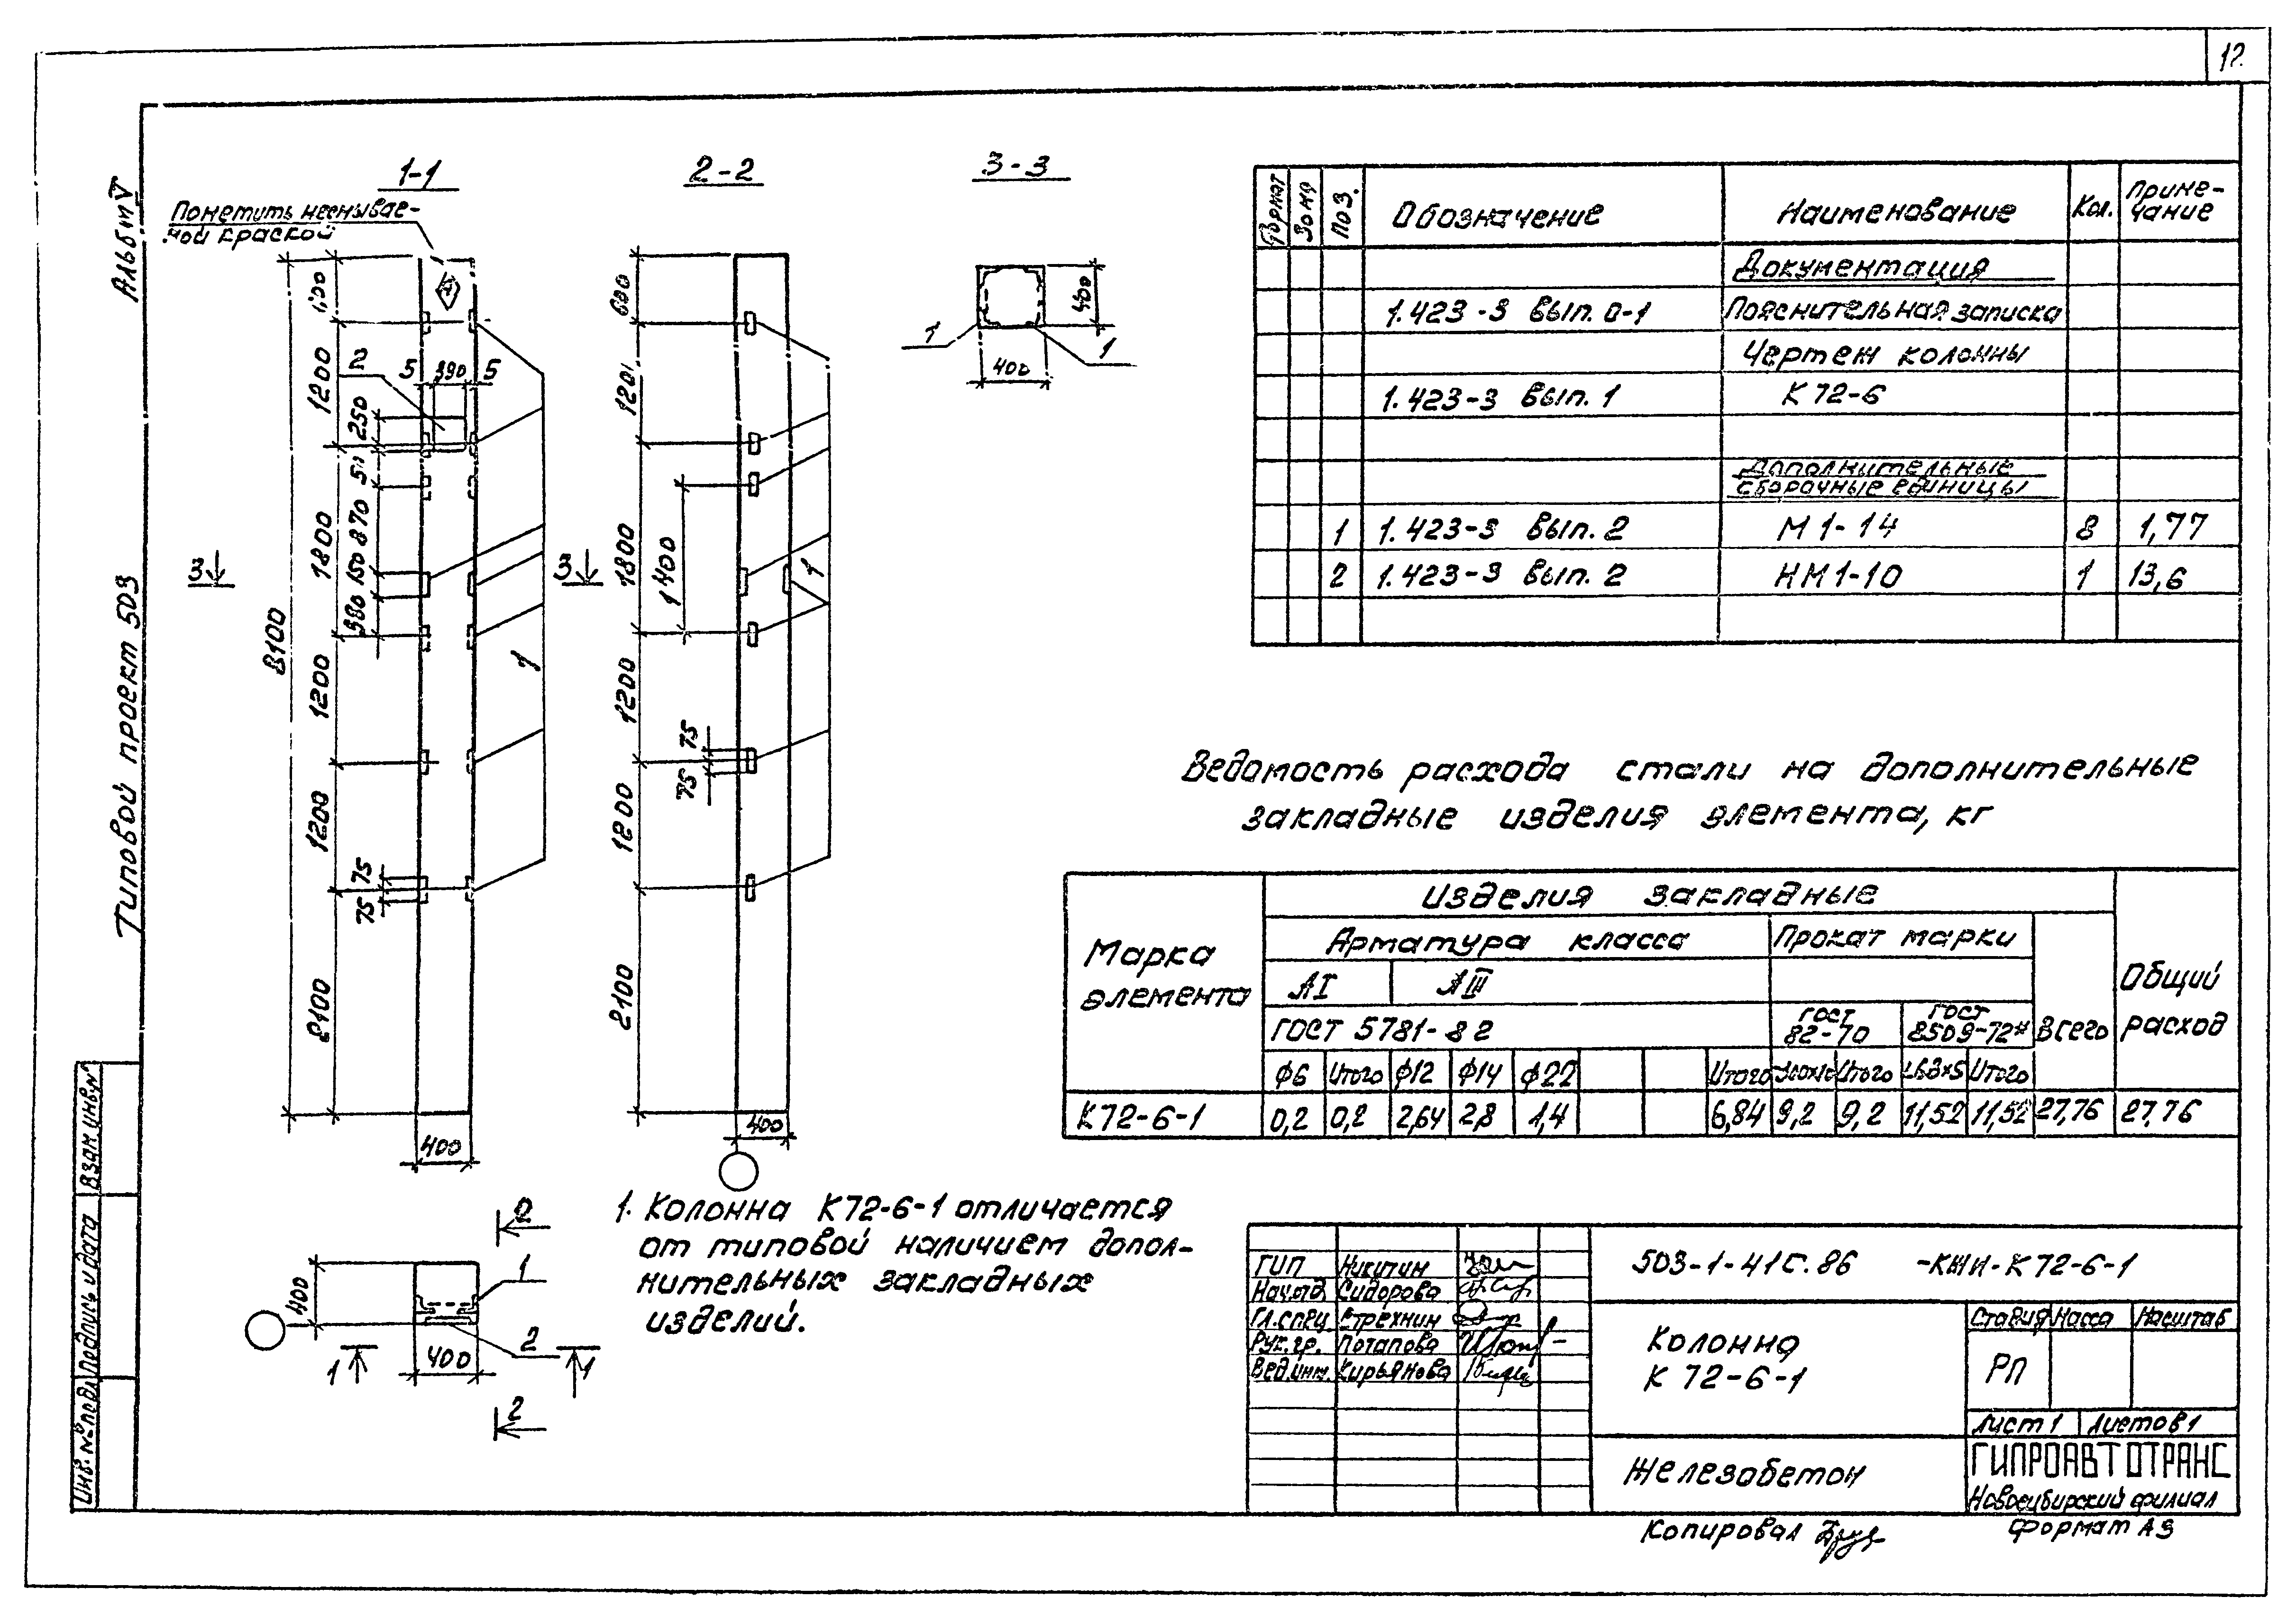 12
Альбом V
Типовой проект 503
Взам.инв.№
Подпись и дата
Инв.№подл.
1-1
Пометить несмывае-
мой краской
600
1200
2
5
390
5
250
50
870
1800
150
380
3
3
8100
1200
1
1200
75
75
2100
400
2-2
600
1200
1800
1400
1
1200
75
75
1200
2100
400
3-3
1
400
1
400
2
400
1
2
1
400
1
2
1. Колонна К72-6-1 отличается
от типовой наличием допол-
нительных закладных
изделий.
Формат Зона Поз. Обозначение Наименование Кол. Приме-
чание
Документация
1.423-3 Вып. 0-1 Пояснительная записка
Чертеж колонны
1.423-3 Вып. 1 К 72-6
Дополнительные
сборочные единицы
1 1.423-3 Вып. 2 М 1-14 8 1,77
2 1.423-3 Вып. 2 НМ1-10 1 13,6
Ведомость расхода стали на дополнительные
закладные изделия элемента, кг
Марка
элемента
Изделия закладные
Общий
расход
Арматура класса Прокат марки
Всего
АI АIII
ГОСТ 5781-82
ГОСТ
82-70
ГОСТ
8509-72*
Ф6 Итого Ф12 Ф14 Ф22 Итого Итого L63×5 Итого
К72-6-1 0,2 0,2 2,64 2,8 1,4 6,84 9,2 9,2 11,52 11,52 27,76 27,76
ГИП Никитин
Нач.отд. Сидорова
Гл.спец. Стрехнин
Рук.гр. Потапова
Вед.инж. Кирьянова
503-1-41с.86 -КЖИ-К72-6-1
Колонна
К 72-6-1
Стадия Масса Масштаб
РП
Лист 1 Листов 1
Железобетон
ГИПРОАВТОТРАНС
Новосибирский филиал
Копировал
Формат А3